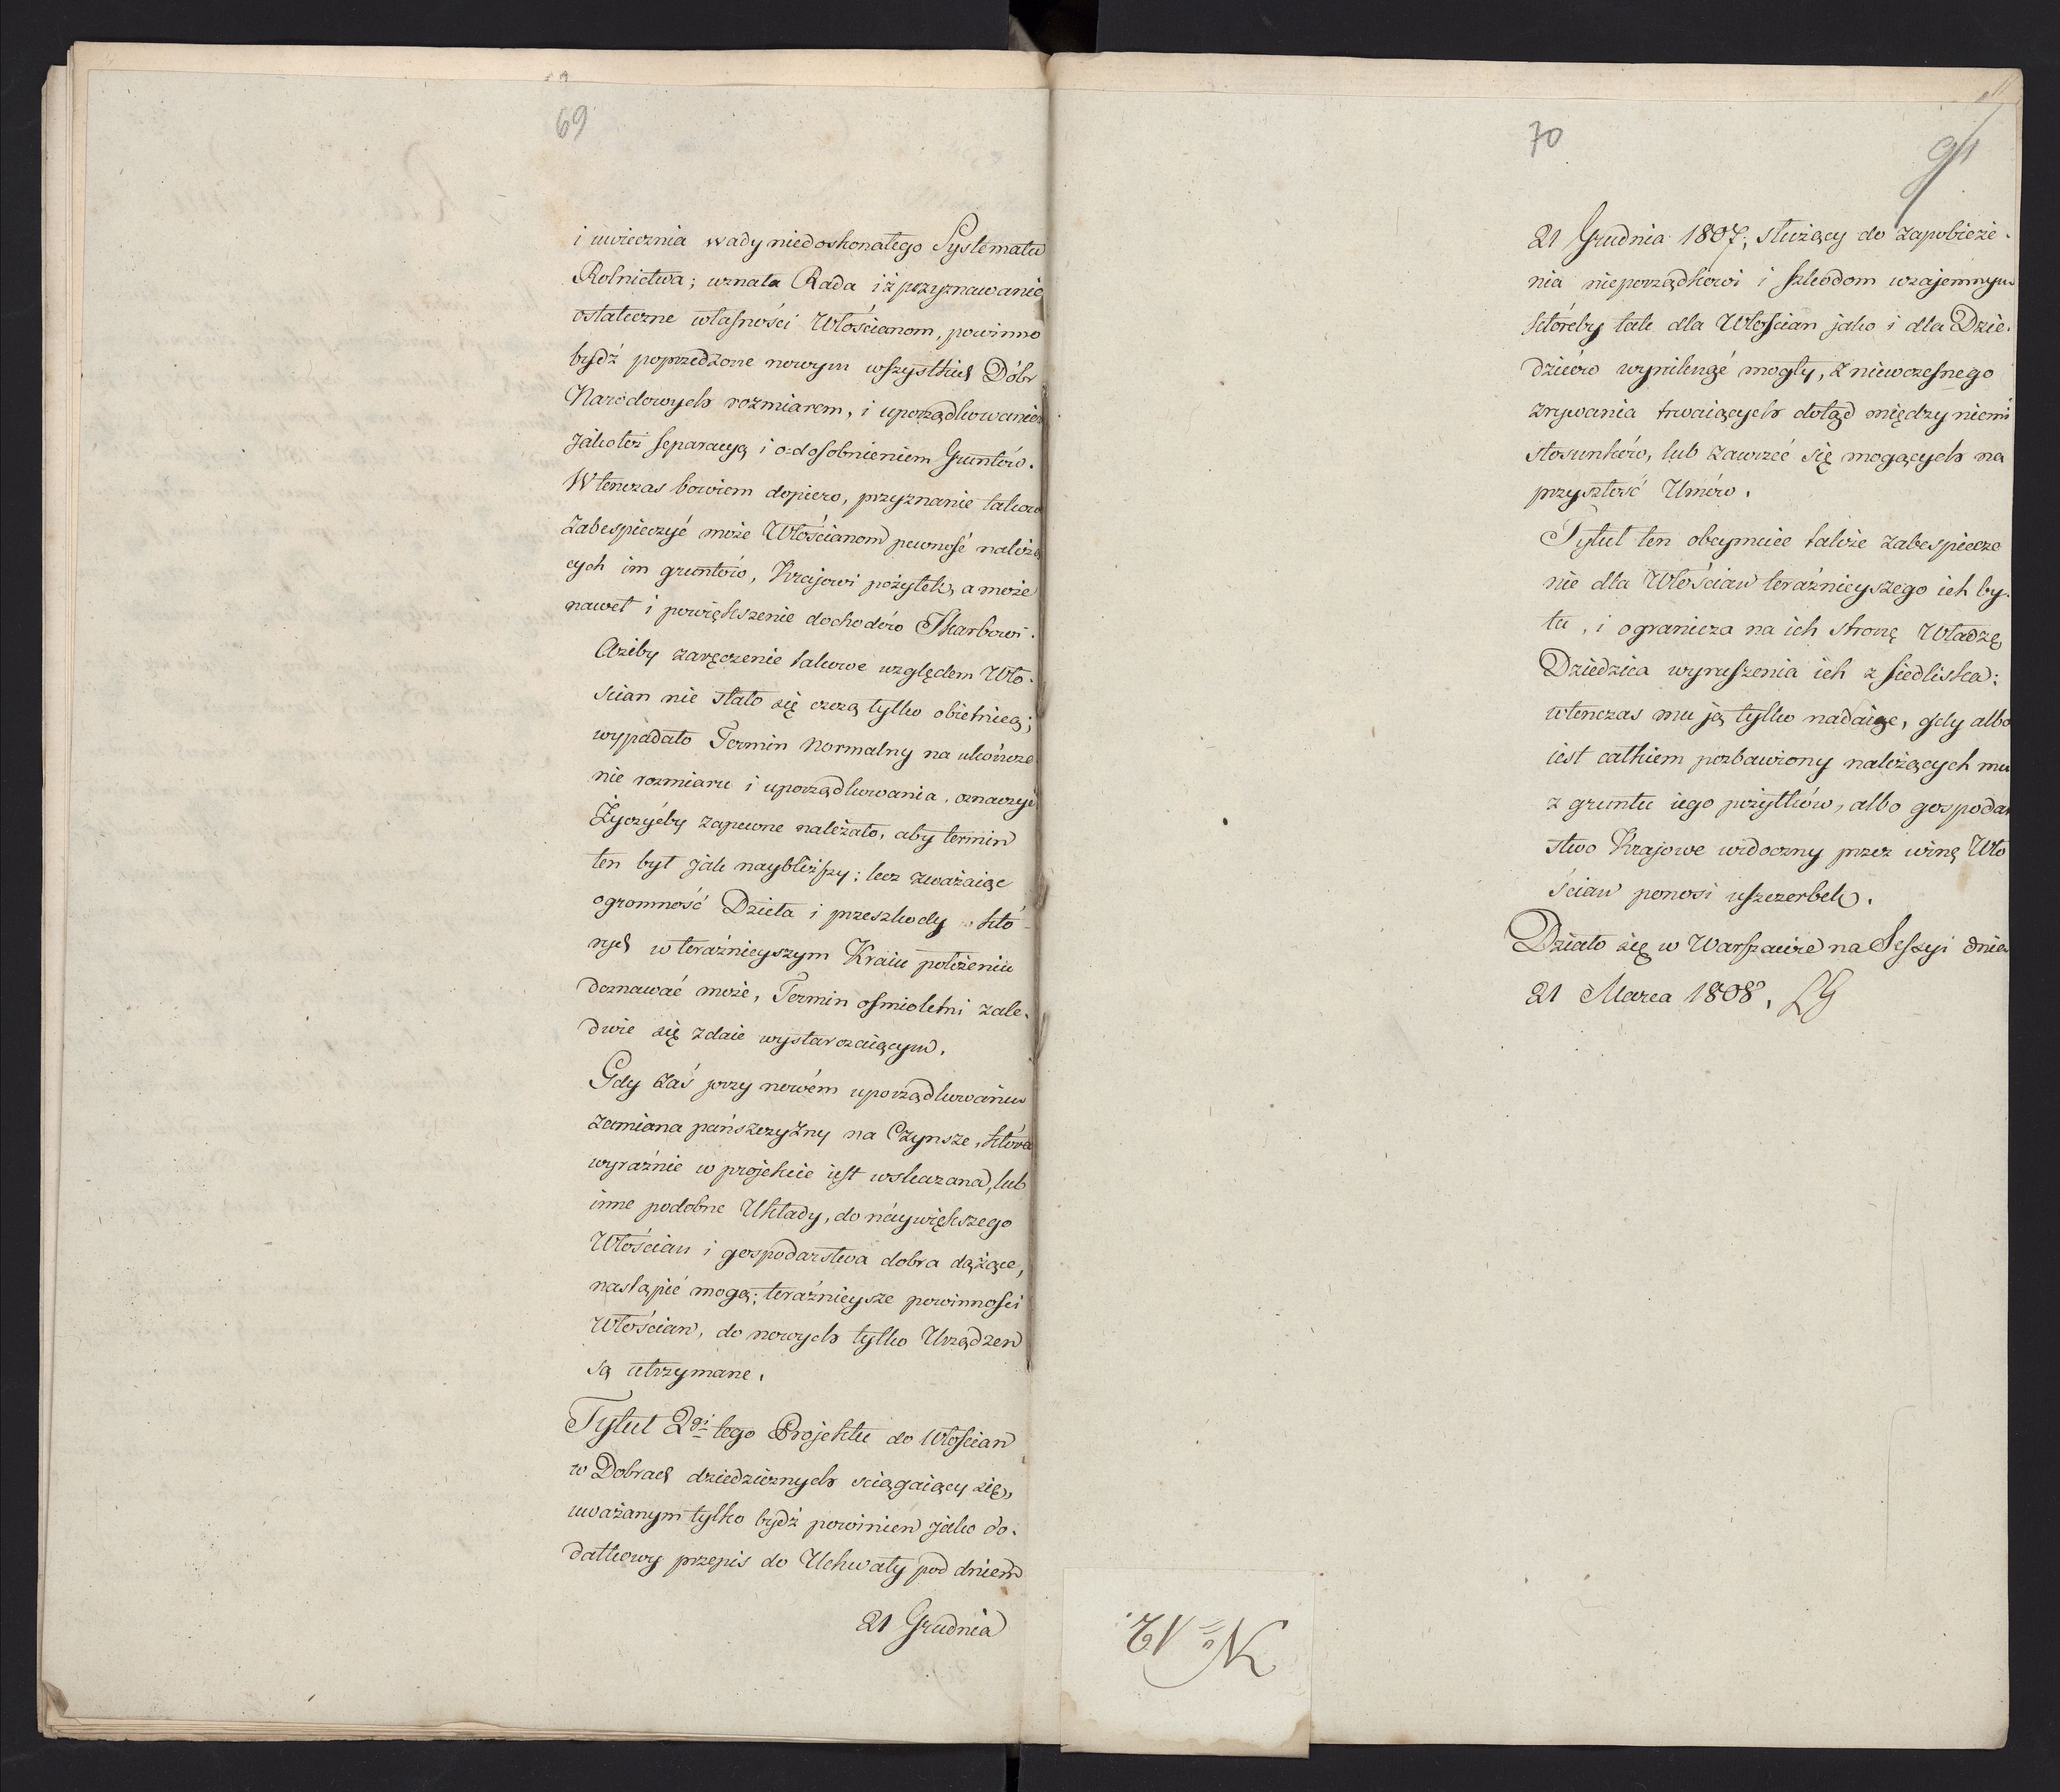 69
i uwiecznia wady niedoskonałego Systematu
Rolnictwa; uznała Rada iż przyznawanie
ostateczne własności Włościanom, powinno
bydź poprzedzone nowym wszystkich Dóbr
Narodowych rozmiarem, i uporządkowaniem
jako też separacyą i odosobnieniem Gruntów.
Wtenczas bowiem dopiero, przyznanie takowe
zabespieczyć może Włościanom pewność należą
cych im gruntów, Krajowi pożytek, a może
nawet i powiększenie dochodów Skarbowi.
Ażeby zaręczenie takowe względem Wło-
ścian nie stało się czczą tylko obietnicą;
wypadało Termin normalny na ukończe
nie rozmiaru i uporządkowania, oznaczyć
Życzyćby zapewne należało, aby termin
ten był jak naybliższy; lecz zważaiąc
ogromność Dzieła i przeszkody któ-
rych w teraźnieyszym Kraiu położeniu
doznawać może, Termin ośmioletni zale-
dwie się zdaie wystarczaiącym.
Gdy zaś przy nowém uporządkowaniu
zamiana pańszczyzny na Czynsze, która
wyraźnie w projekcie iest wskazana, lub
inne podobne Układy, do naywiększego
Włościan i gospodarstwa dobra dążące,
nastąpić mogą; teraźnieysze powinności
Włościan, do nowych tylko Urządzen
są utrzymane.
Tytuł 2gi tego Projektu do Włościan
w Dobrach dziedzicznych sciągaiący się,
uważanym tylko bydź powinien jako do-
datkowy przepis do Uchwały pod dniem
21 Grudnia
70
21 Grudnia 1807, służący do zapobieże-
nia nieporządkowi i szkodom wzajemnym
któreby tak dla Włościan jako i dla Dzie-
dziców wyniknąć mogły, z niewczesnego
zrywania trwaiących dotąd między niemi
stosunków, lub zawrzeć się mogących na
przyszłość Umów.
Tytuł ten obeymuie także zabespiecze
nie dla Włościan teraźnieyszego ich by-
tu, i ogranicza na ich stronę Władzę
Dziedzica wyruszenia ich z siedliska:
wtenczas mu ją tylko nadaiąc, gdy albo
iest całkiem pozbawiony należących mu
z gruntu iego pożytków, albo gospodar
stwo Krajowe widoczny przez winę Wło
ścian ponosi uszczerbek.
Działo się w Warszawie na Sessyi dnia
21 Marca 1808.
N 12.